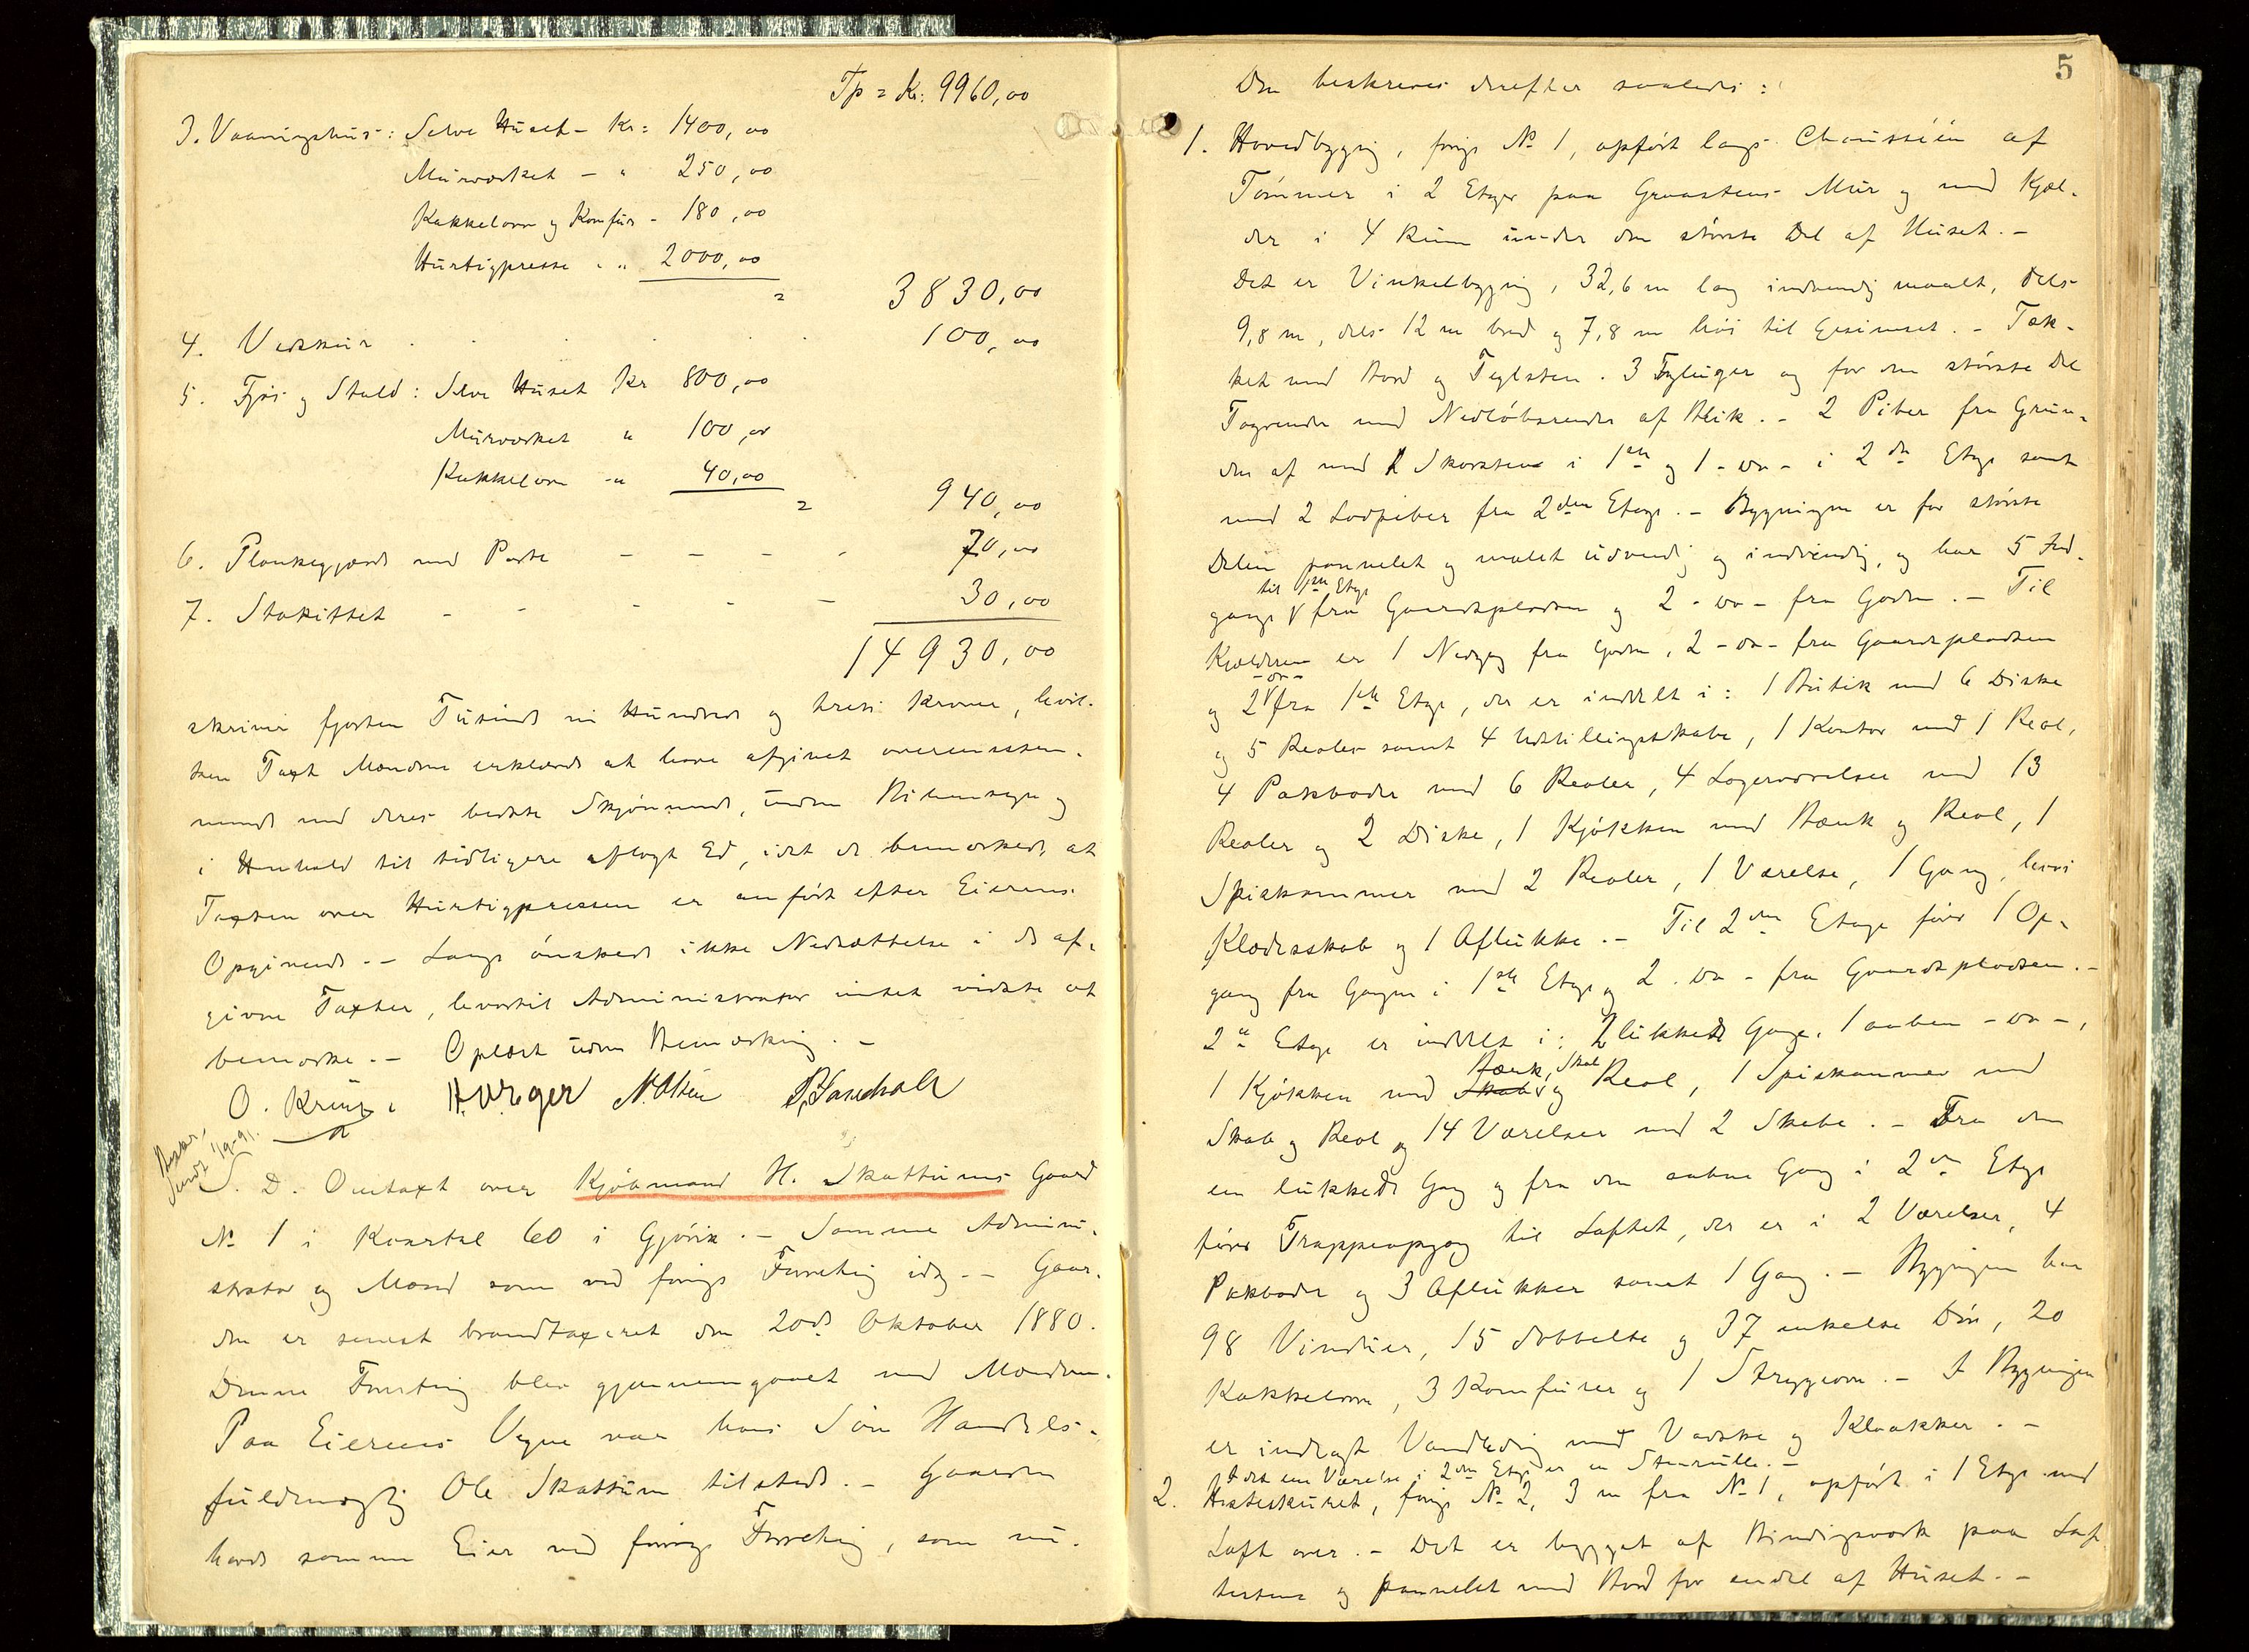 Tp = Kr. 9960,00
3. Vaaningshus: Selve Huset - Kr. 1400,00
Murværket - " 250,00
Kakkelovn og Komfur - 180,00
Hurtigpresse - " 2000,00
= 3830,00
4. Vedskur . . . . . 100,00
5. Fjøs og Stald: Selve Huset Kr 800,00
Murværket " 100,00
Kakkelovn - " 40,00
= 940,00
6. Plankegjærde med Porte - - - - 70,00
7. Stakittet - - - - - 30,00
14930,00
skriver fjorten Tusinde ni Hundrede og treti Kroner, hvil-
ken Taxt Mændene erklærede at have afgivet overensstem-
mende med deres bedste Skjønnende, uden Bihensyn og
i Henhold til tidligere aflagt Ed, idet de bemærkede, at
Taxten over Hurtigpressen er anført efter Eierens
Opgivende. - Lange ønskede ikke Nedsættelse i de af-
givne Taxter, hvortil Administrator intet vidste at
bemærke. - Oplæst uden Bemærkning. -
O. H. N.
1/9-91.
S. D. Omtaxt over Kjøbmand H. Skattums Gaard
No 1 i Kvartal 60 i Gjøvik. - Samme Admini-
strator og Mænd som ved forrige Forretning idag. - Gaar-
den er senest brandtaxeret den 20de Oktober 1880.
Denne Forretning blev gjennemgaaet med Mændene.
Paa Eierens Vegne var hans Søn Handels-
fuldmægtig Ole Skattum tilstede. - Gaarden
havde samme Eier ved forrige Forretning, som nu.
5
Den beskrives derefter saaledes:
1. Hovedbygning, forrige No 1, opført langs Chausséen af
Tømmer i 2 Etager paa Graastens Mur og med Kjæl-
der i 4 Rum under den største Del af Huset. -
Det er Vinkelbygning, 32,6 m lang indvendig maalt, dels
9,8 m, dels 12 m bred og 7,8 m høi til Gesimset. - Tæk-
ket med Bord og Teglsten. 3 Fløiger og for den største Del
Tagrender med Nedløbsrender af Blik. - 2 Piber fra Grun-
den af med 2 Skorstene i 1ste og 1 - do - i 2den Etage samt
med 2 Lodpiber fra 2den Etage. - Bygningen er for største
Delen pannelet og malet udvendig og indvendig, og har 5 Ind-
til 1ste Etage
gange fra Gaardspladsen og 2 - do - fra Gaden. - Til
Kjælderen er 1 Nedgang fra Gaden, 2 - do - fra Gaardspladsen
- do -
og 2 fra 1ste Etage, der er inddelt i: 1 Butik med 6 Diske
og 5 Reoler samt 4 Udstillingsskabe, 1 Kontor med 1 Reol,
4 Pakboder med 6 Reoler, 4 Lagerværelser med 13
Reoler og 2 Diske, 1 Kjøkken med Bænk og Reol, 1
Spiskammer med 2 Reoler, 1 Værelse, 1 Gang, hvori
Klædesskab og 1 Aflukke. - Til 2den Etage fører 1 Op-
gang fra Gangen i 1ste Etage og 2 - do - fra Gaardspladsen. -
2den Etage er inddelt i: 2 lukkede Gange, 1 aaben - do -,
Bænk, Skab
1 Kjøkken med Skab og Reol, 1 Spiskammer med
Skab og Reol og 14 Værelser med 2 Skabe. - Fra den
ene lukkede Gang og fra den aabne Gang i 2den Etage
fører Trappeopgang til Loftet, der er i 2 Værelser, 4
Pakboder og 3 Aflukker samt 1 Gang. - Bygningen har
98 Vinduer, 15 dobbelte og 37 enkelte Døre, 20
Kakkelovne, 3 Komfurer og 1 Strygeovn. - I Bygningen
er indlagt Vandledning med Vadske og Kloakker. -
I det ene Værelse i 2den Etage er en Stenrulle. -
2. Hesteskuret, forrige No 2, 3 m fra No 1, opført i 1 Etage med
Loft over. - Det er bygget af Bindingsværk paa Laf-
testene og pannelet med Bord for endel af Huset. -